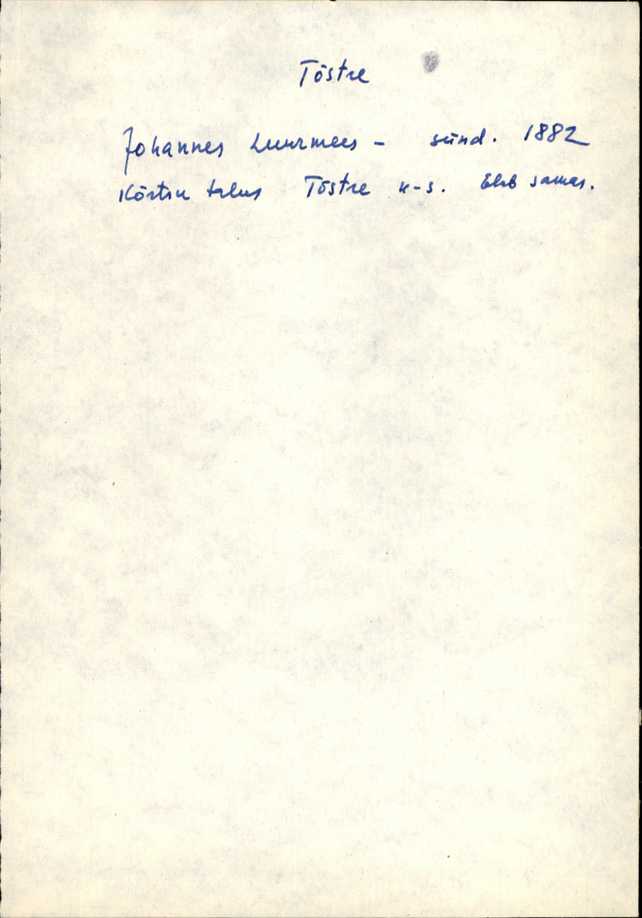 Tõstre
Johannes Luurmees – sünd. 1882
Kõrtsu talus Tõstre k-s. Elab samas.